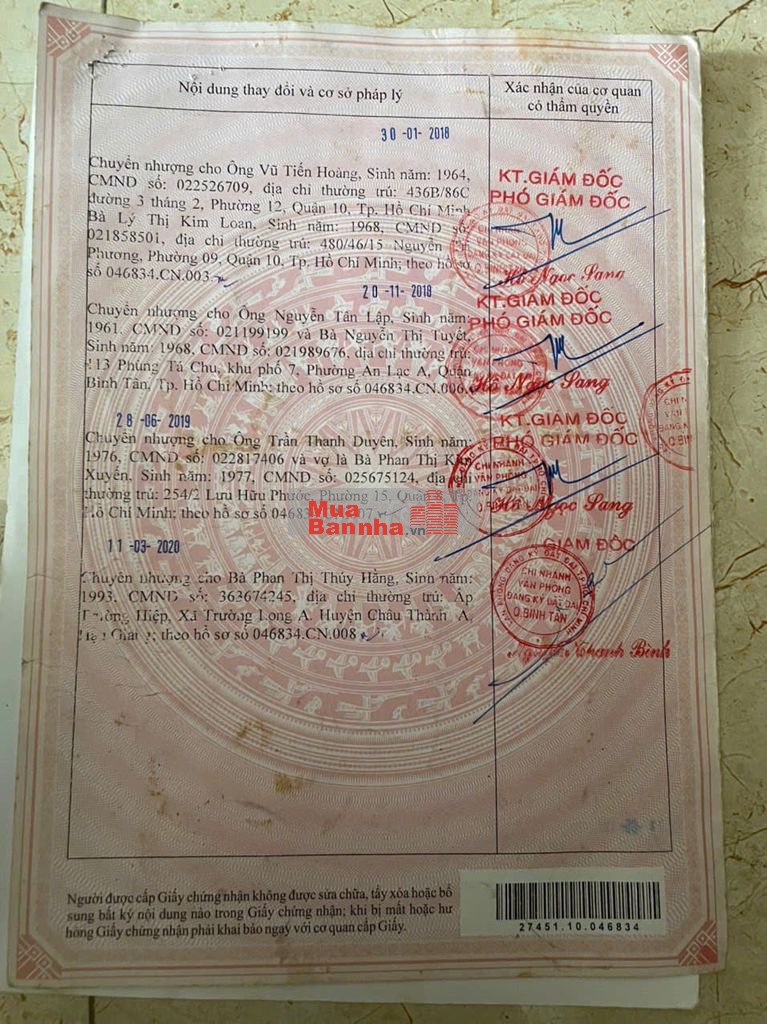 Nội dung thay đổi và cơ sở pháp lý
Xác nhận của cơ quan
có thẩm quyền
30 -01- 2018
Chuyển nhượng cho Ông Vũ Tiến Hoàng, Sinh năm: 1964,
CMND số: 022526709, địa chỉ thường trú: 436B/86C
đường 3 tháng 2, Phường 12, Quận 10, Tp. Hồ Chí Minh
Bà Lý Thị Kim Loan, Sinh năm: 1968, CMND số:
021858501, địa chỉ thường trú: 480/46/15 Nguyễn
Phương, Phường 09, Quận 10, Tp. Hồ Chí Minh; theo hồ sơ
số 046834.CN.003
KT.GIÁM ĐỐC
PHÓ GIÁM ĐỐC
Hồ Ngọc Sang
20 -11- 2018
Chuyển nhượng cho Ông Nguyễn Tân Lập, Sinh năm:
1961, CMND số: 021199199 và Bà Nguyễn Thị Tuyết,
Sinh năm: 1968, CMND số: 021989676, địa chỉ thường trú:
113 Phùng Tá Chu, khu phố 7, Phường An Lạc A, Quận
Bình Tân, Tp. Hồ Chí Minh; theo hồ sơ số 046834.CN.006
KT.GIÁM ĐỐC
PHÓ GIÁM ĐỐC
Hồ Ngọc Sang
28 -06- 2019
Chuyển nhượng cho Ông Trần Thanh Duyên, Sinh năm:
1976, CMND số: 022817406 và vợ là Bà Phan Thị
Xuyến, Sinh năm: 1977, CMND số: 025675124, địa chỉ
thường trú: 254/2 Lưu Hữu Phước, Phường 15, Quận 8,
Hồ Chí Minh; theo hồ sơ số
KT.GIÁM ĐỐC
PHÓ GIÁM ĐỐC
CHI NHÁNH
VĂN PHÒNG
ĐĂNG KÝ ĐẤT ĐAI
Q.BÌNH TÂN
Hồ Ngọc Sang
Mua
Bannha.vn
11 -03- 2020
Chuyển nhượng cho Bà Phan Thị Thúy Hằng, Sinh năm:
1993, CMND số: 363674245, địa chỉ thường trú: Ấp
Trường Hiệp, Xã Trường Long A, Huyện Châu Thành A,
Hậu Giang; theo hồ sơ số 046834.CN.008
GIÁM ĐỐC
CHI NHÁNH
VĂN PHÒNG
ĐĂNG KÝ ĐẤT ĐAI
Q.BÌNH TÂN
Khanh Bình
Người được cấp Giấy chứng nhận không được sửa chữa, tẩy xóa hoặc bổ
sung bất kỳ nội dung nào trong Giấy chứng nhận; khi bị mất hoặc hư
hỏng Giấy chứng nhận phải khai báo ngay với cơ quan cấp Giấy.
27451.10.046834